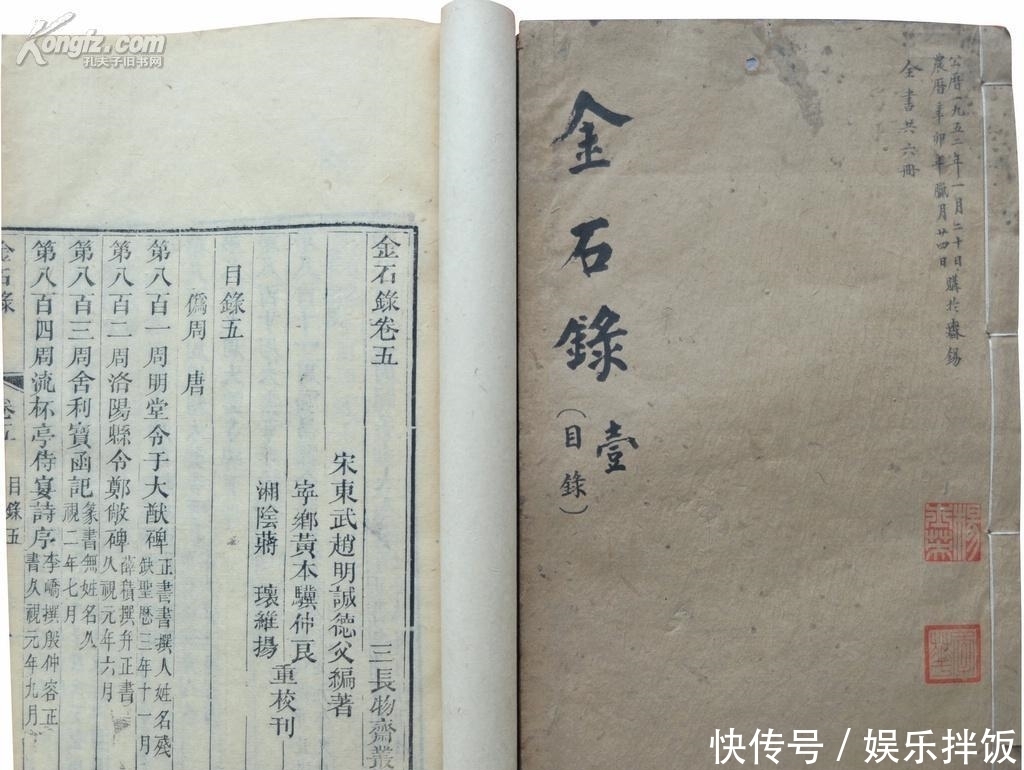 Kongfz.com
孔夫子旧书网
金石錄卷五
三長物齋叢
宋東武趙明誠德父編著
寧鄉黃本驥仲良
湘陰蔣　瓌維揚
重校刊
目錄五
僞周　唐
第八百一周明堂令于大猷碑
正書書撰人姓名殘
缺聖曆三年十一月
第八百二周洛陽縣令鄭敞碑
薛稷撰并正書
久視元年六月
第八百三周舍利寶函記
篆書無姓名久
視二年七月
第八百四周流杯亭侍宴詩序
李嶠撰殷仲容正
書久視元年九月
金石錄
卷五
目錄五
公曆一九五二年一月二十日購於無錫
農曆辛卯年臘月廿四日
全書共六冊
金石錄
壹
(目錄)
楊
快传号/娱乐拌饭